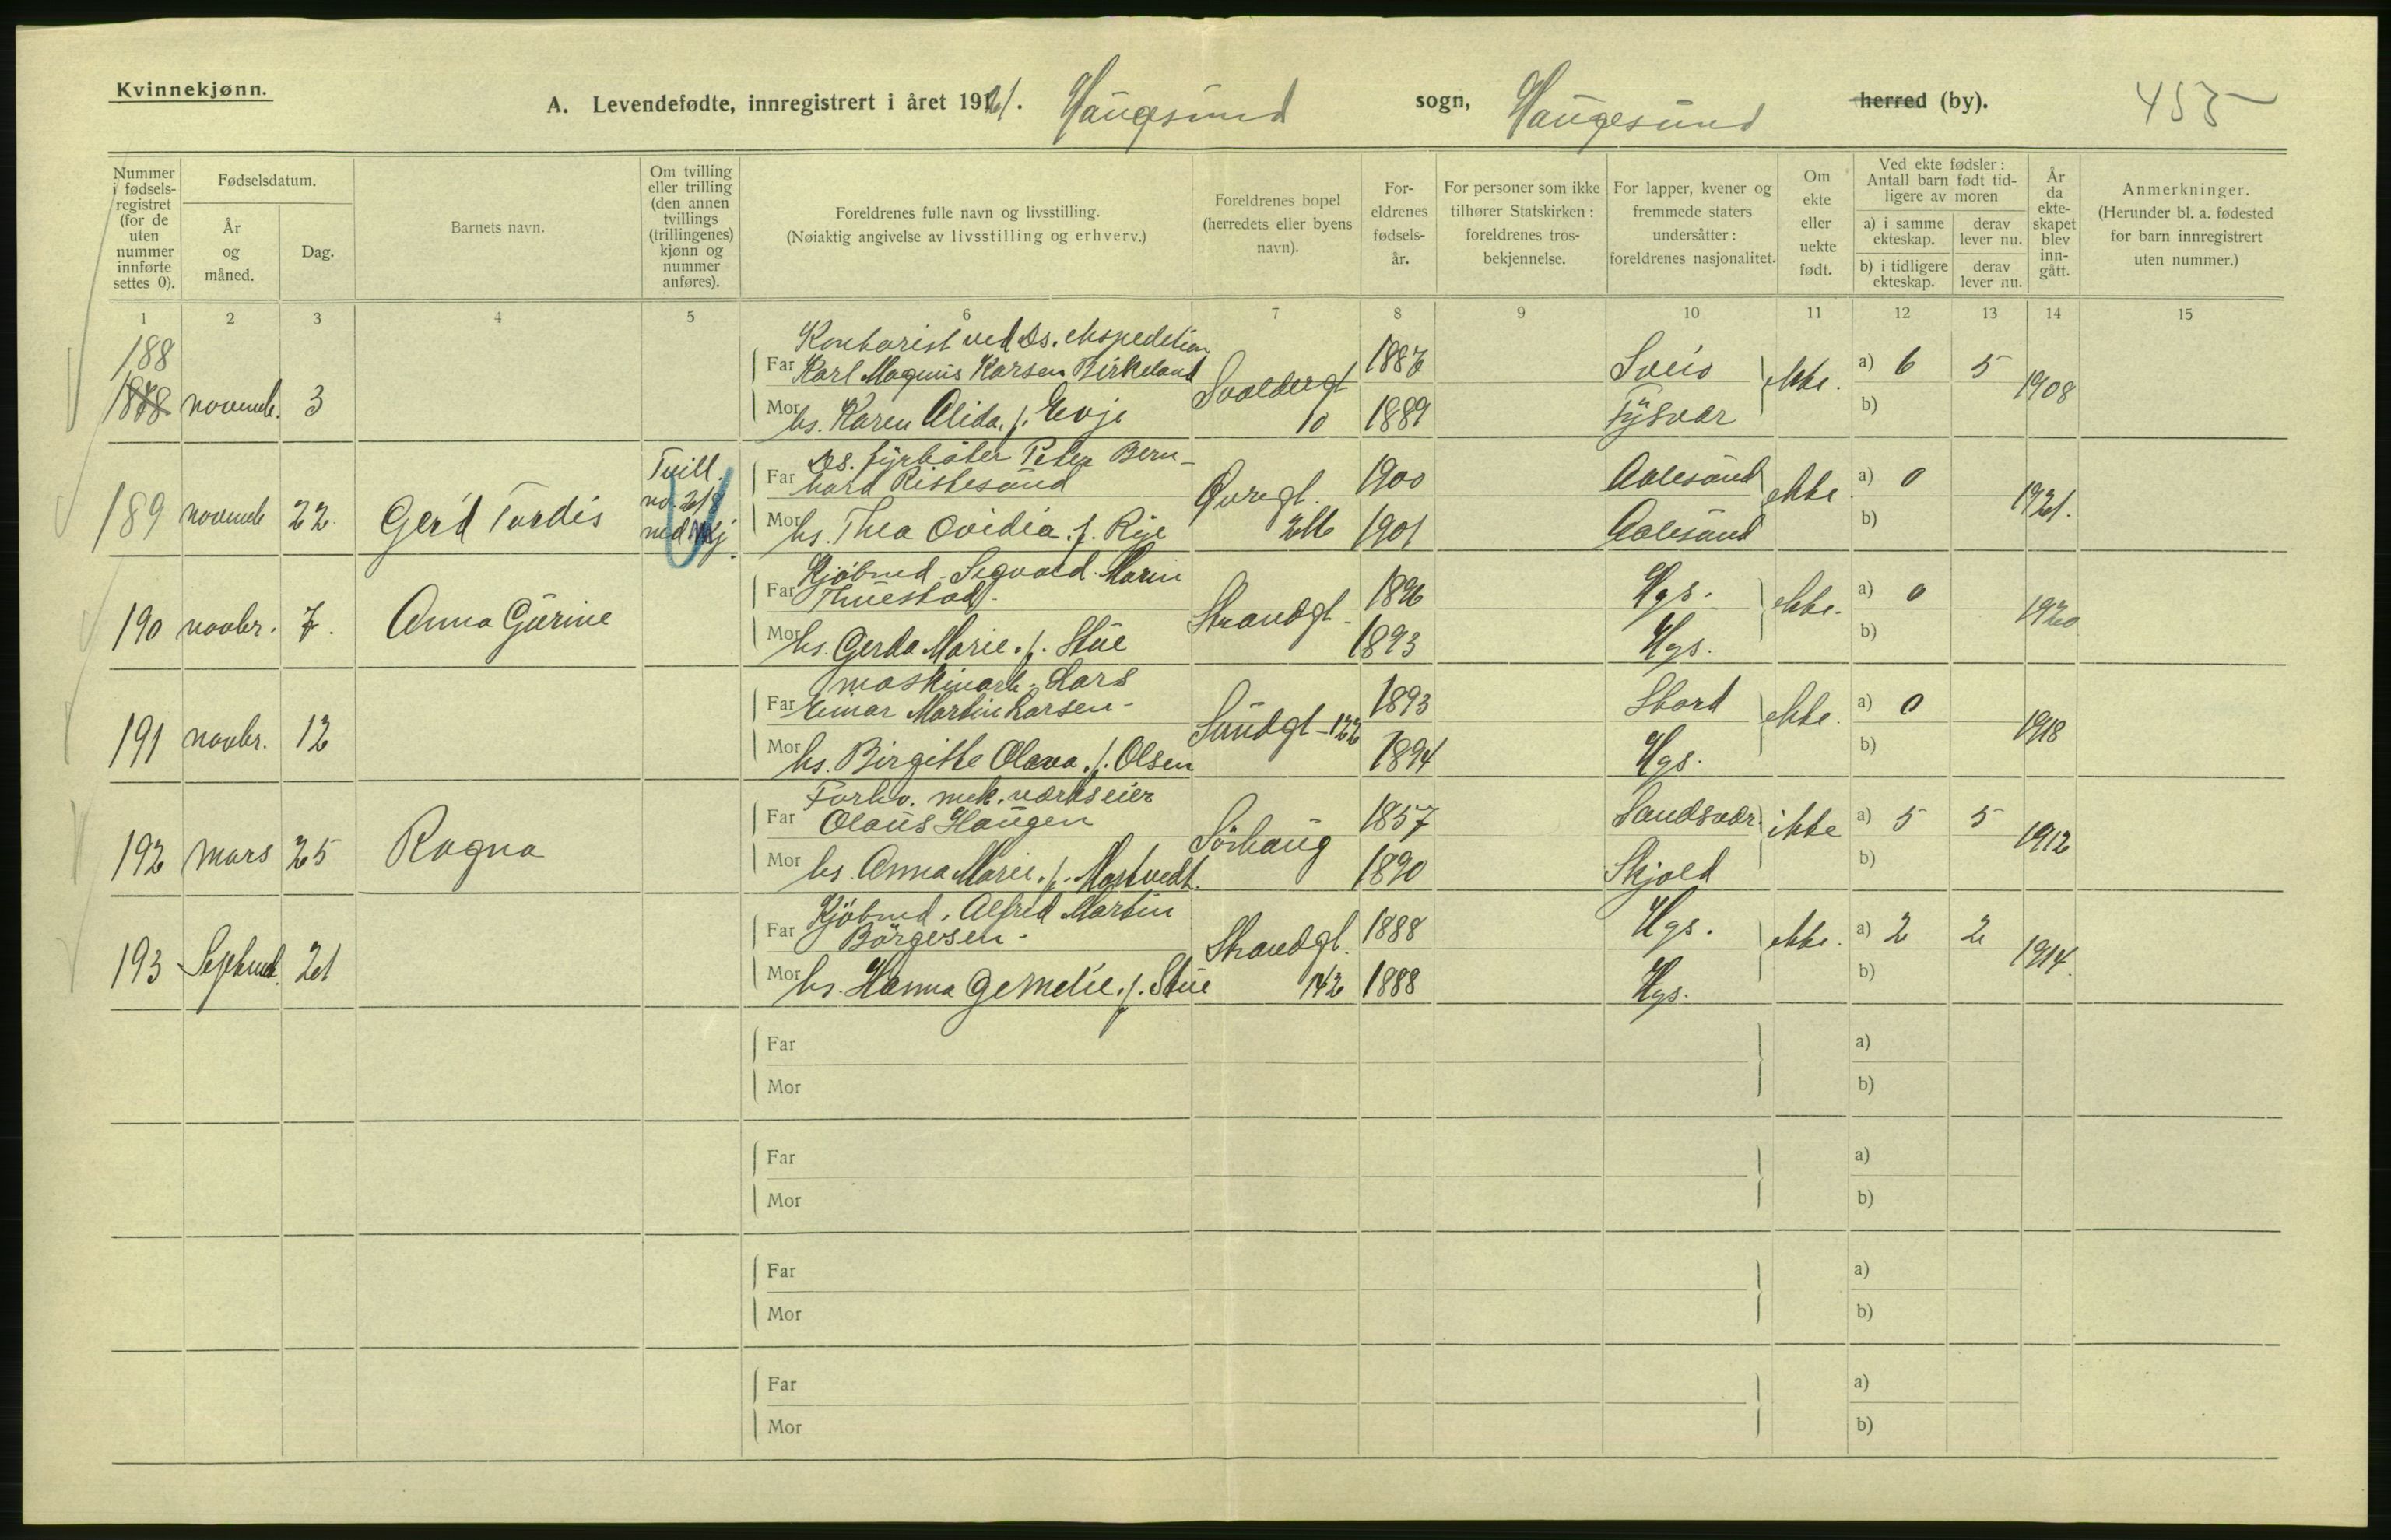 Kvinnekjønn.
A. Levendefødte, innregistrert i året 1921. Haugesund sogn, Haugesund herred (by). 455
Nummer i fødselsregistret (for de uten nummer innførte settes 0).
Fødselsdatum.
År og måned.
Dag.
Barnets navn.
Om tvilling eller trilling (den annen tvillings (trillingenes) kjønn og nummer anføres).
Foreldrenes fulle navn og livsstilling.
(Nøiaktig angivelse av livsstilling og erhverv.)
Foreldrenes bopel (herredets eller byens navn).
Foreldrenes fødselsår.
For personer som ikke tilhører Statskirken: foreldrenes trosbekjennelse.
For lapper, kvener og fremmede staters undersåtter: foreldrenes nasjonalitet.
Om ekte eller uekte født.
Ved ekte fødsler: Antall barn født tidligere av moren
a) i samme ekteskap.
derav lever nu.
b) i tidligere ekteskap.
derav lever nu.
År da ekteskapet blev inngått.
Anmerkninger.
(Herunder bl. a. fødested for barn innregistrert uten nummer.)
1 2 3 4 5 6 7 8 9 10 11 12 13 14 15
188
novemb. 3
Kontorist ved Ds. ekspedition
Far Karl Magnus Karsen Birkeland 1887 Sveio ekte. a) 6 5 1908
Svoldergt 10
Mor hs. Karen Alida, f. Evje 1889 Tysvær b)
189 novemb 22. Gerd Tordis
Tvill.
Ds. fyrbøter Peter Bern-
Far hard Ristesund 1900 Aalesund ekte a) 0 1921.
Øvregt. 216
Mor hs. Thea Ovidia. f. Rise 1901 Aalesund b)
190 novbr. 7. Anna Gurine
Kjøbmd. Sigvald Marin
Far Thuestad. 1896 Hgs. ekte. a) 0 1920
Strandgt.
Mor hs. Gerda Marie. f. Stue 1893 Hgs. b)
191 novbr. 12
maskinarb. Lars
Far Einar Martin Larsen - 1893 Stord ekte. a) 0 1918
Sundgt - 122
Mor hs. Birgitte Olava. f. Olsen 1894 Hgs. b)
192 mars 25 Ragna
Forhv. mek. verkseier
Far Olaus Haugen 1857 Sandsvær. ekte a) 5 5 1912
Sörhaug
Mor hs. Anna Marie. f. Mastvedt. 1890 Skjold b)
193 Septemb. 21
Kjøbmd. Alfred Martin
Far Börgesen - 1888 Hgs. ekte. a) 2 2 1914.
Strandgt. 142
Mor hs. Hanna Gemelie. f. Stue 1888 Hgs. b)
Far a)
Mor b)
Far a)
Mor b)
Far a)
Mor b)
Far a)
Mor b)